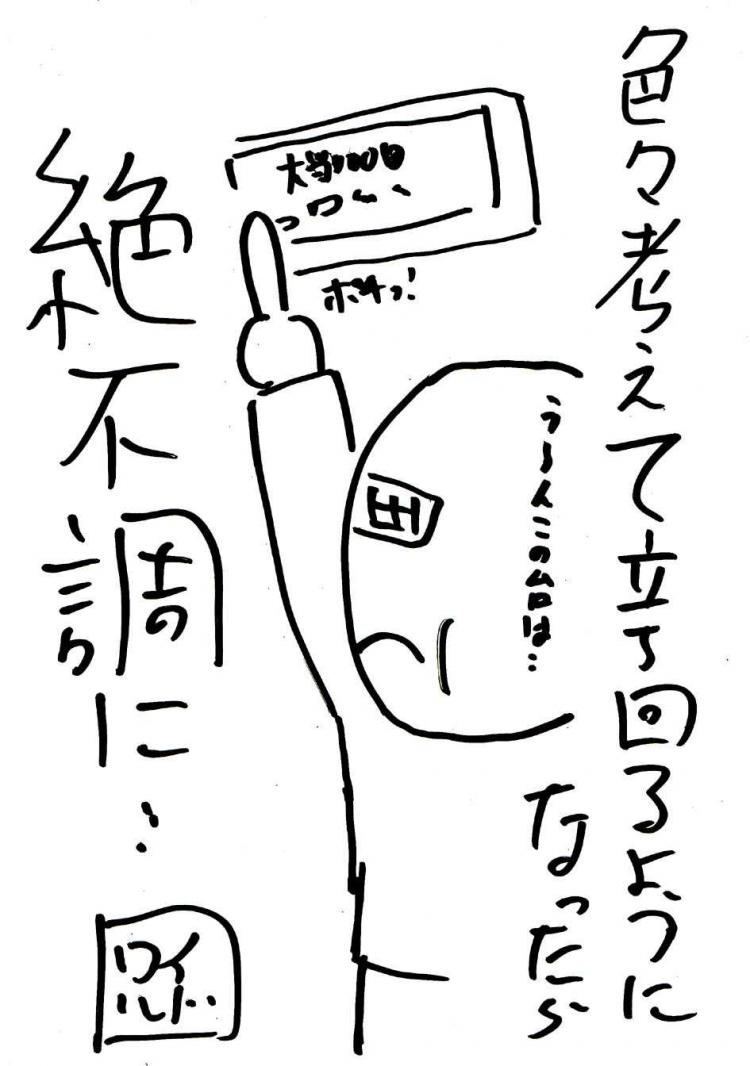 色々考えて立ち回るように
なったら
うーんこの台は…
大当100回
ポチっ！
田
絶不調に…
ワイ
ルド